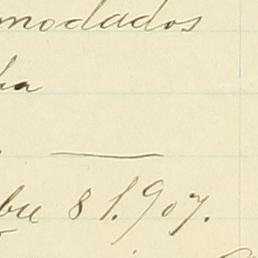 modados
ba
bre 8 1.907.